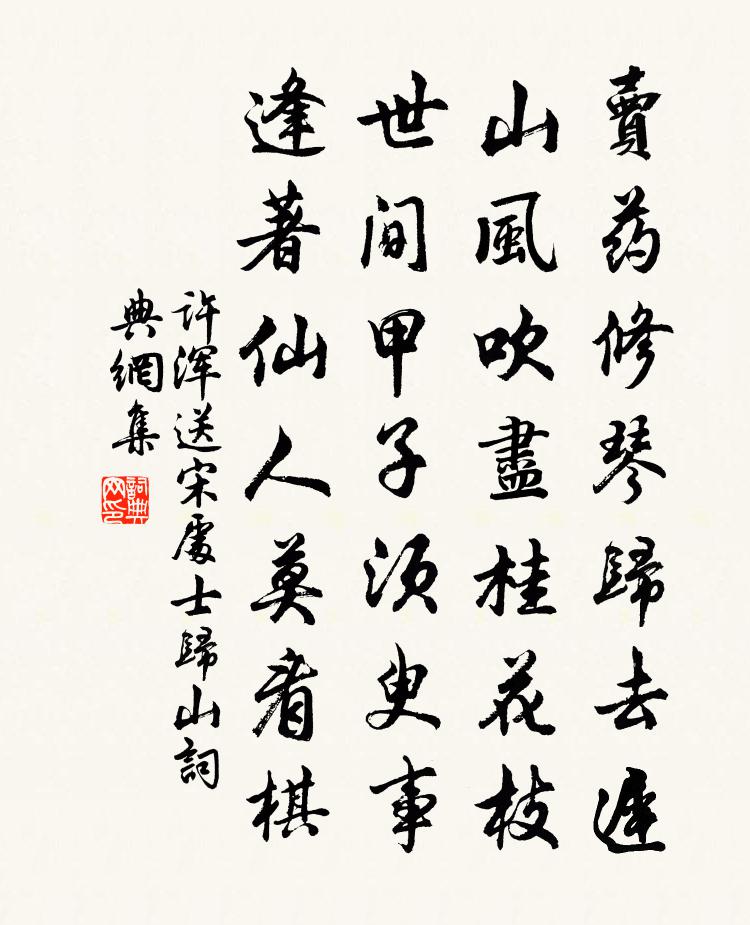 賣药修琴歸去遲
山風吹盡桂花枝
世间甲子須臾事
逢著仙人莫看棋
许渾送宋處士歸山詞
典網集
詞典
网印